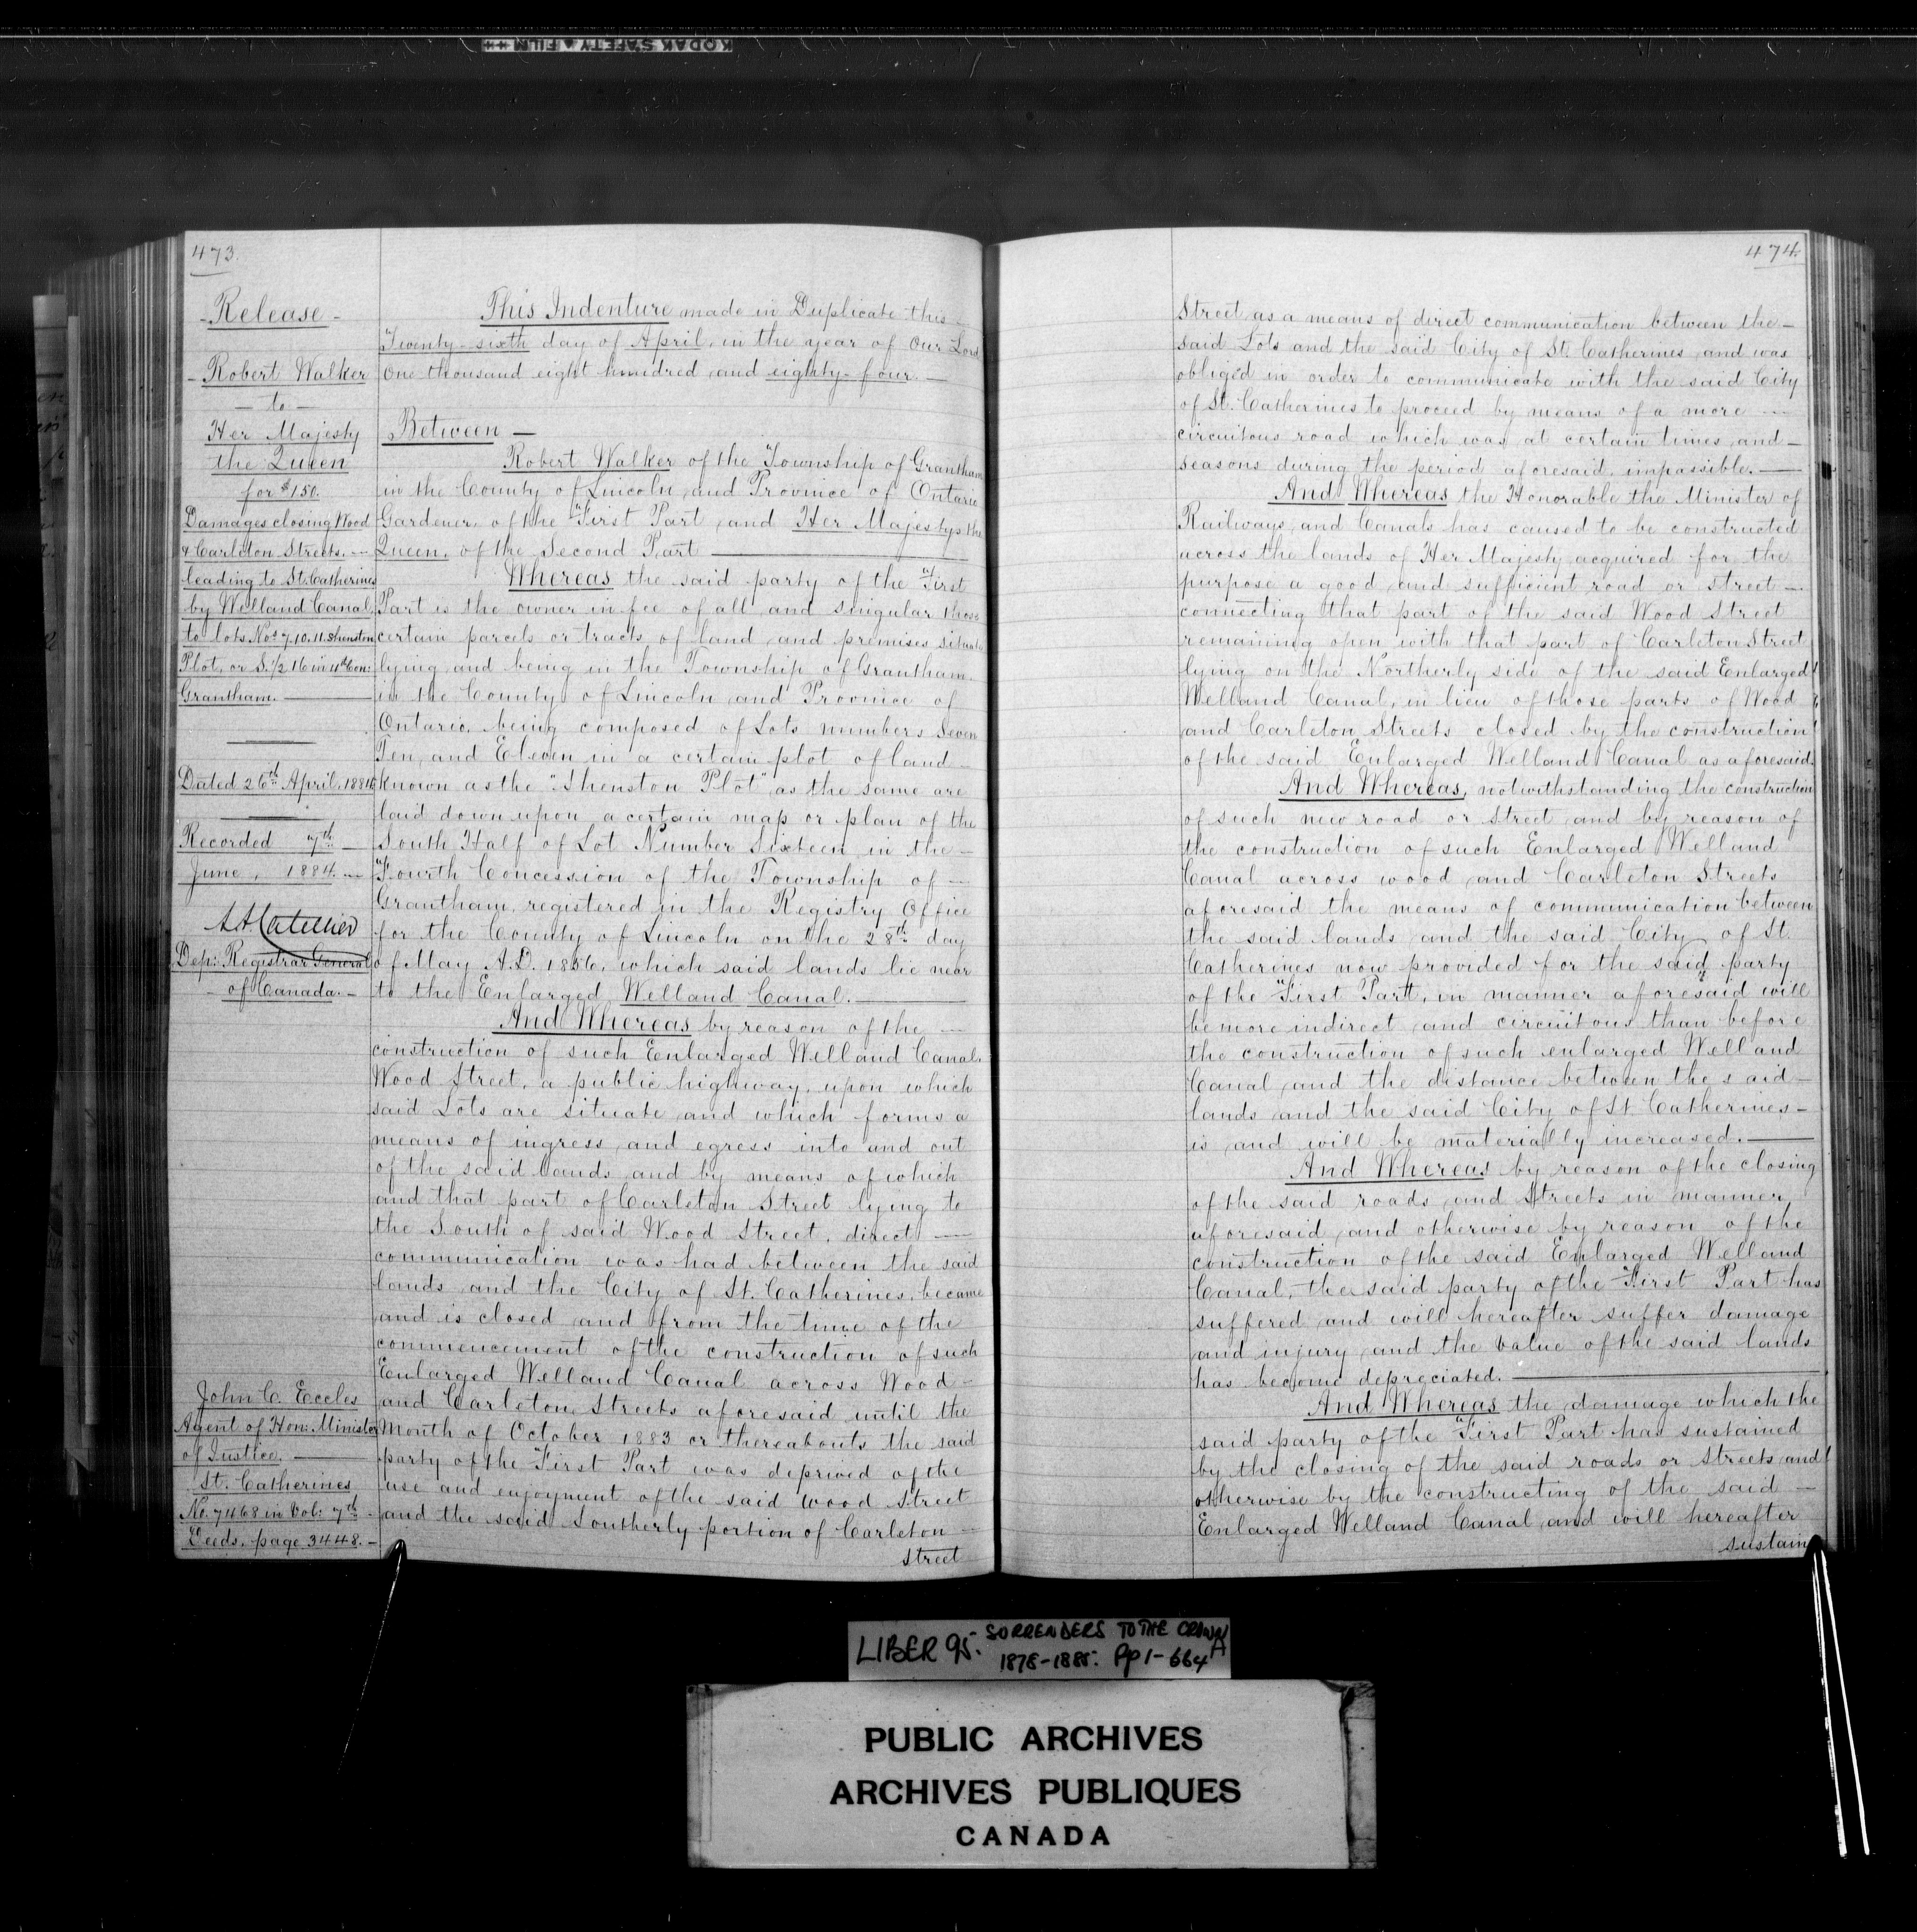 KODAK SAFETY FILM
473.
- Release -
- Robert Walker
- to -
Her Majesty
the Queen
for $150.
Damages closing Wood
& Carleton Streets. -
leading to St. Catherines
by Welland Canal,
to lots Nos 7.10.11. Shenston
Plot, or S. 1/2 16 in 4th Con:
Grantham. -
Dated 26th April, 1884
Recorded 7th -
June, 1884. -
Dep: Registrar General
- of Canada. -
John C. Eccles
Agent of Hon: Minister
of Justice. -
St. Catherines
No. 7468 in Vol: 7th -
Deeds, page 3448. -
This Indenture made in Duplicate this -
Twenty-sixth day of April, in the year of Our Lord
One thousand eight hundred and eighty-four. -
Between -
Robert Walker of the Township of Grantham
in the County of Lincoln and Province of Ontario
Gardener, of the First Part and Her Majesty the
Queen, of the Second Part -
Whereas the said party of the First
Part is the owner in fee of all and singular those
certain parcels or tracts of land and premises situate
lying and being in the Township of Grantham
in the County of Lincoln and Province of
Ontario, being composed of Lots numbers Seven
Ten, and Eleven in a certain plot of land -
known as the "Shenston Plot" as the same are
laid down upon a certain map or plan of the
South Half of Lot Number Sixteen in the -
Fourth Concession of the Township of -
Grantham, registered in the Registry Office
for the County of Lincoln on the 28th day
of May A.D. 1856, which said lands lie near
to the Enlarged Welland Canal. -
And Whereas by reason of the -
construction of such Enlarged Welland Canal,
Wood Street, a public highway, upon which
said Lots are situate and which forms a
means of ingress and egress into and out
of the said lands and by means of which
and that part of Carleton Street lying to
the South of said Wood Street, direct -
communication was had between the said
lands and the City of St. Catherines, became
and is closed and from the time of the
commencement of the construction of such
Enlarged Welland Canal across Wood -
and Carleton Streets aforesaid until the
Month of October 1883 or thereabouts the said
party of the First Part was deprived of the
use and enjoyment of the said Wood Street
and the said Southerly portion of Carleton -
Street
474.
Street as a means of direct communication between the -
said Lots and the said City of St. Catherines and was
obliged in order to communicate with the said City
of St. Catherines to proceed by means of a more -
circuitous road which was at certain times and -
seasons during the period aforesaid, impassible. -
And Whereas the Honorable the Minister of
Railways and Canals has caused to be constructed
across the lands of Her Majesty acquired for the
purpose a good and sufficient road or street -
connecting that part of the said Wood Street
remaining open with that part of Carleton Street
lying on the Northerly side of the said Enlarged
Welland Canal, in lieu of those parts of Wood
and Carleton Streets closed by the construction
of the said Enlarged Welland Canal as aforesaid.
And Whereas, notwithstanding the construction
of such new road or Street and by reason of
the construction of such Enlarged Welland
Canal across Wood and Carleton Streets
aforesaid the means of communication between
the said lands and the said City of St.
Catherines now provided for the said party
of the First Part, in manner aforesaid will
be more indirect and circuitous than before
the construction of such enlarged Welland
Canal and the distance between the said -
lands and the said City of St. Catherines -
is and will be materially increased. -
And Whereas by reason of the closing
of the said roads and Streets in manner
aforesaid and otherwise by reason of the
construction of the said Enlarged Welland
Canal, the said party of the First Part has
suffered and will hereafter suffer damage
and injury and the value of the said lands
has become depreciated. -
And Whereas the damage which the
said party of the First Part has sustained
by the closing of the said roads or Streets and
otherwise by the constructing of the said -
Enlarged Welland Canal and will hereafter
sustain
LIBER 95. SORRENDERS TO THE CROWN
1878-1885. Pp 1-664A
PUBLIC ARCHIVES
ARCHIVES PUBLIQUES
CANADA